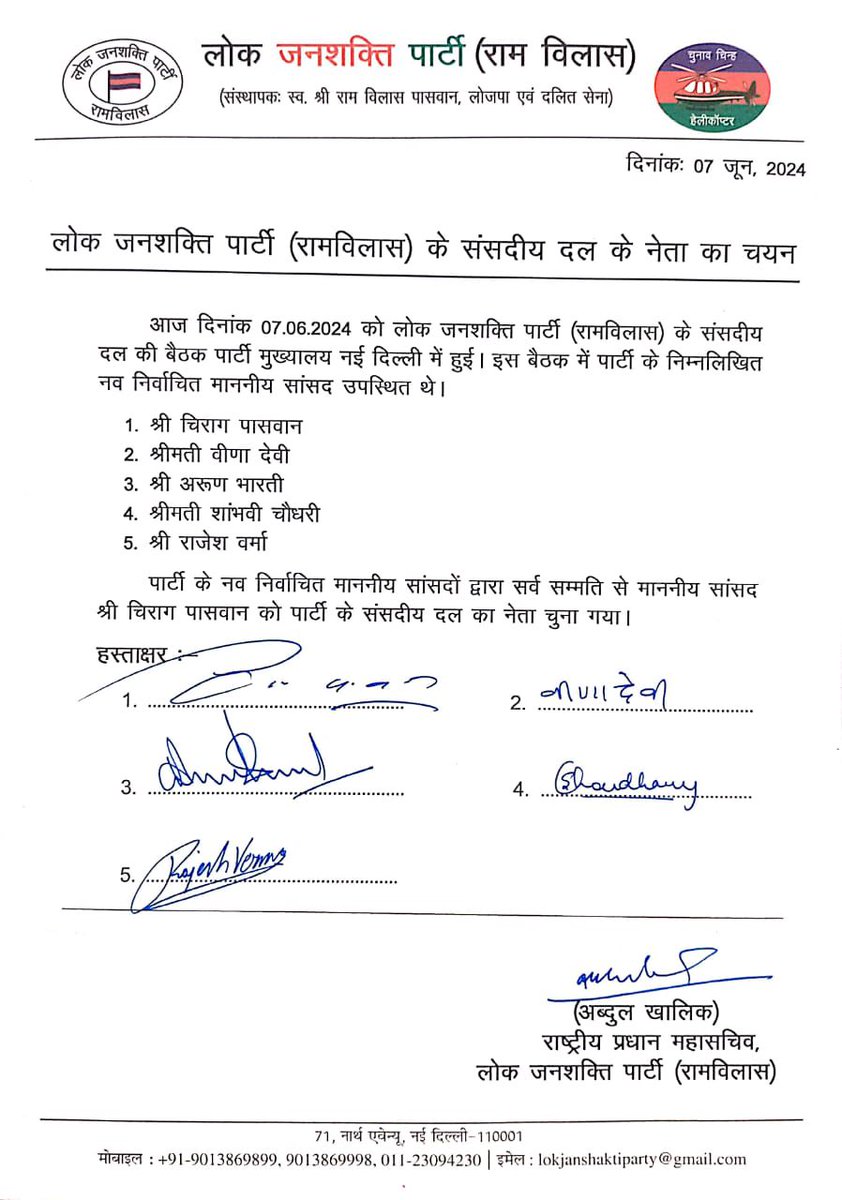 लोक जनशक्ति पार्टी
रामविलास
लोक जनशक्ति पार्टी (राम विलास)
(संस्थापकः स्व. श्री राम विलास पासवान, लोजपा एवं दलित सेना)
चुनाव चिन्ह
हैलीकॉप्टर
दिनांकः 07 जून, 2024
लोक जनशक्ति पार्टी (रामविलास) के संसदीय दल के नेता का चयन
आज दिनांक 07.06.2024 को लोक जनशक्ति पार्टी (रामविलास) के संसदीय
दल की बैठक पार्टी मुख्यालय नई दिल्ली में हुई। इस बैठक में पार्टी के निम्नलिखित
नव निर्वाचित माननीय सांसद उपस्थित थे।
1. श्री चिराग पासवान
2. श्रीमती वीणा देवी
3. श्री अरूण भारती
4. श्रीमती शांभवी चौधरी
5. श्री राजेश वर्मा
पार्टी के नव निर्वाचित माननीय सांसदों द्वारा सर्व सम्मति से माननीय सांसद
श्री चिराग पासवान को पार्टी के संसदीय दल का नेता चुना गया।
हस्ताक्षर :–
1. ............................................
2. वीणा देवी
3. ............................................
4. SChaudhary
5. Rajesh Verma
(अब्दुल खालिक)
राष्ट्रीय प्रधान महासचिव,
लोक जनशक्ति पार्टी (रामविलास)
71, नार्थ एवेन्यू, नई दिल्ली-110001
मोबाइल : +91-9013869899, 9013869998, 011-23094230 | इमेल : lokjanshaktiparty@gmail.com